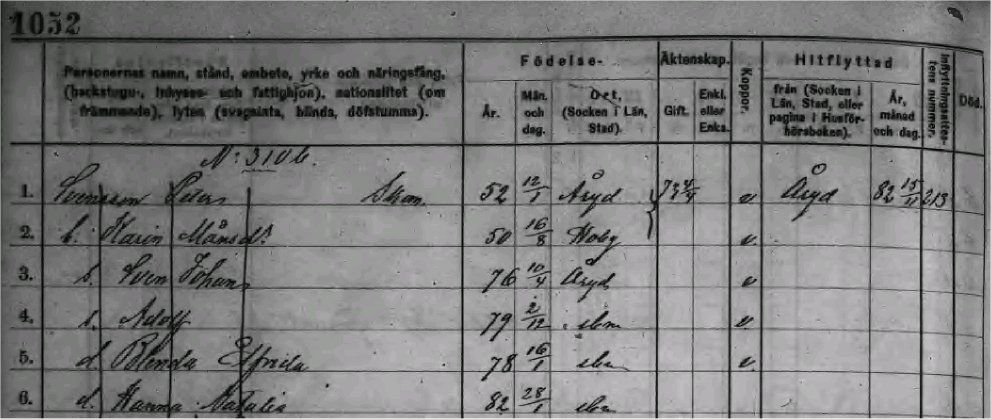 1052
Personernas namn, stånd, embete, yrke och näringsfång, (backstugu-, inhyses- och fattighjon), nationalitet (om främmande), lyten (svagsinta, blinda, döfstumma).
Födelse-
År.
Mån. och dag.
Ort, (Socken i Län, Stad).
Äktenskap.
Gift.
Enkl. eller Enka.
Koppor.
Hitflyttad
från (Socken i Län, Stad, eller pagina i Husförhörsboken).
År, månad och dag.
Inflyttningsattestens nummer.
Död.
N: 310 b.
1. Svensson Peter Skom. 52 12/1 Åryd 73 4/4 v Åryd 82 15/11 213
2. h. Karin Månsdr 50 16/8 Hoby v
3. s. Sven Johan 76 10/4 Åryd v
4. s. Adolf 79 2/12 ibm v
5. d. Blenda Elfrida 78 16/1 ibm v
6. d. Hanna Natalia 82 28/1 ibm